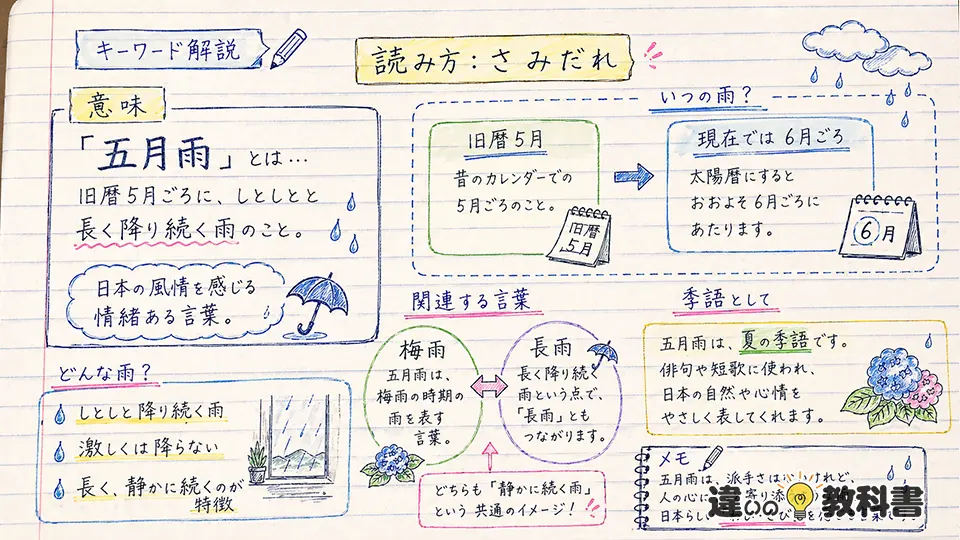 キーワード解説
読み方：さみだれ
意味
「五月雨」とは…
旧暦5月ごろに、しとしとと
長く降り続く雨のこと。
日本の風情を感じる
情緒ある言葉。
いつの雨？
旧暦5月
昔のカレンダーでの
5月ごろのこと。
旧暦
5月
現在では 6月ごろ
太陽暦にすると
おおよそ6月ごろに
あたります。
6月
どんな雨？
しとしと降り続く雨
激しくは降らない
長く、静かに続くのが
特徴
関連する言葉
梅雨
五月雨は、
梅雨の時期の
雨を表す
言葉。
長雨
長く降り続く
雨という点で、
「長雨」とも
つながります。
どちらも「静かに続く雨」
という共通のイメージ！
季語として
五月雨は、夏の季語です。
俳句や短歌に使われ、
日本の自然や心情を
やさしく表してくれます。
メモ
五月雨は、派手さは けれど、
人の心に 寄り添
日本らし
違いの教科書